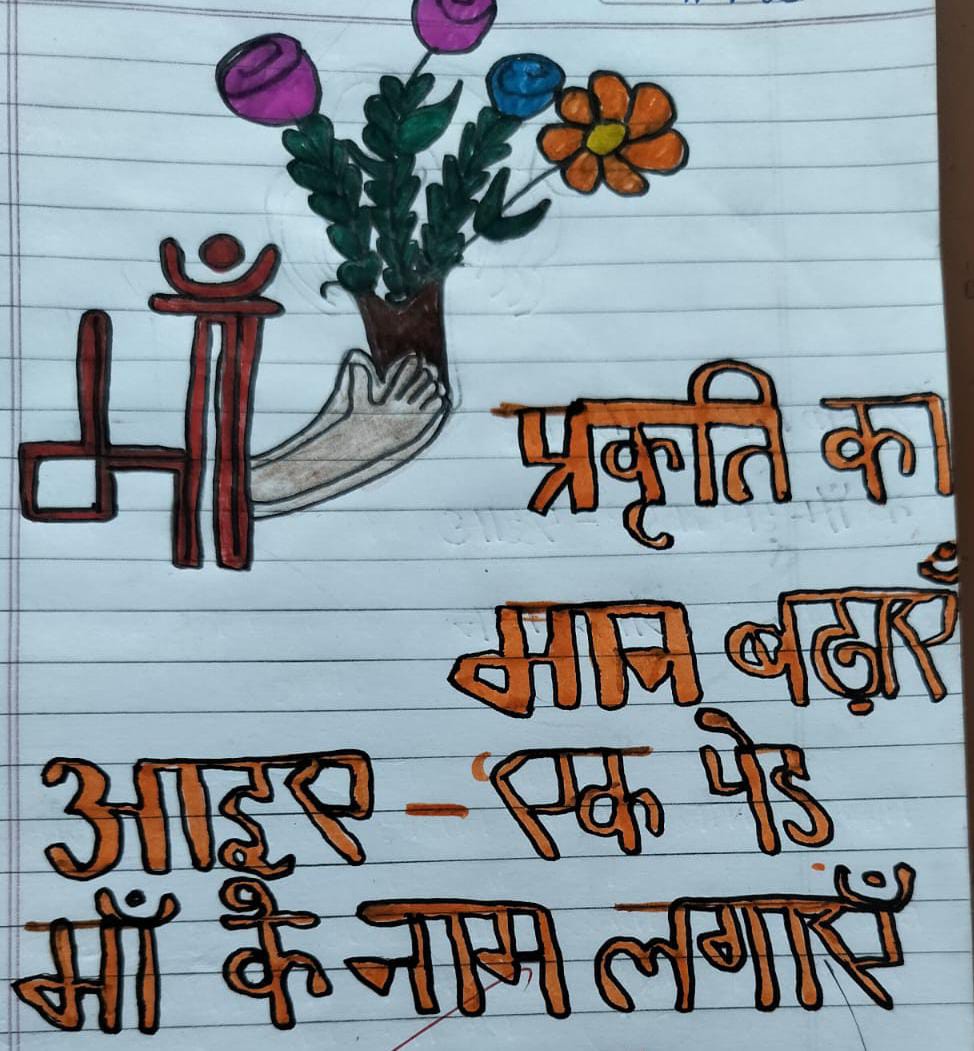 माँ
प्रकृति का
मान बढ़ाएँ
आइए - एक पेड
माँ के नाम लगाएँ